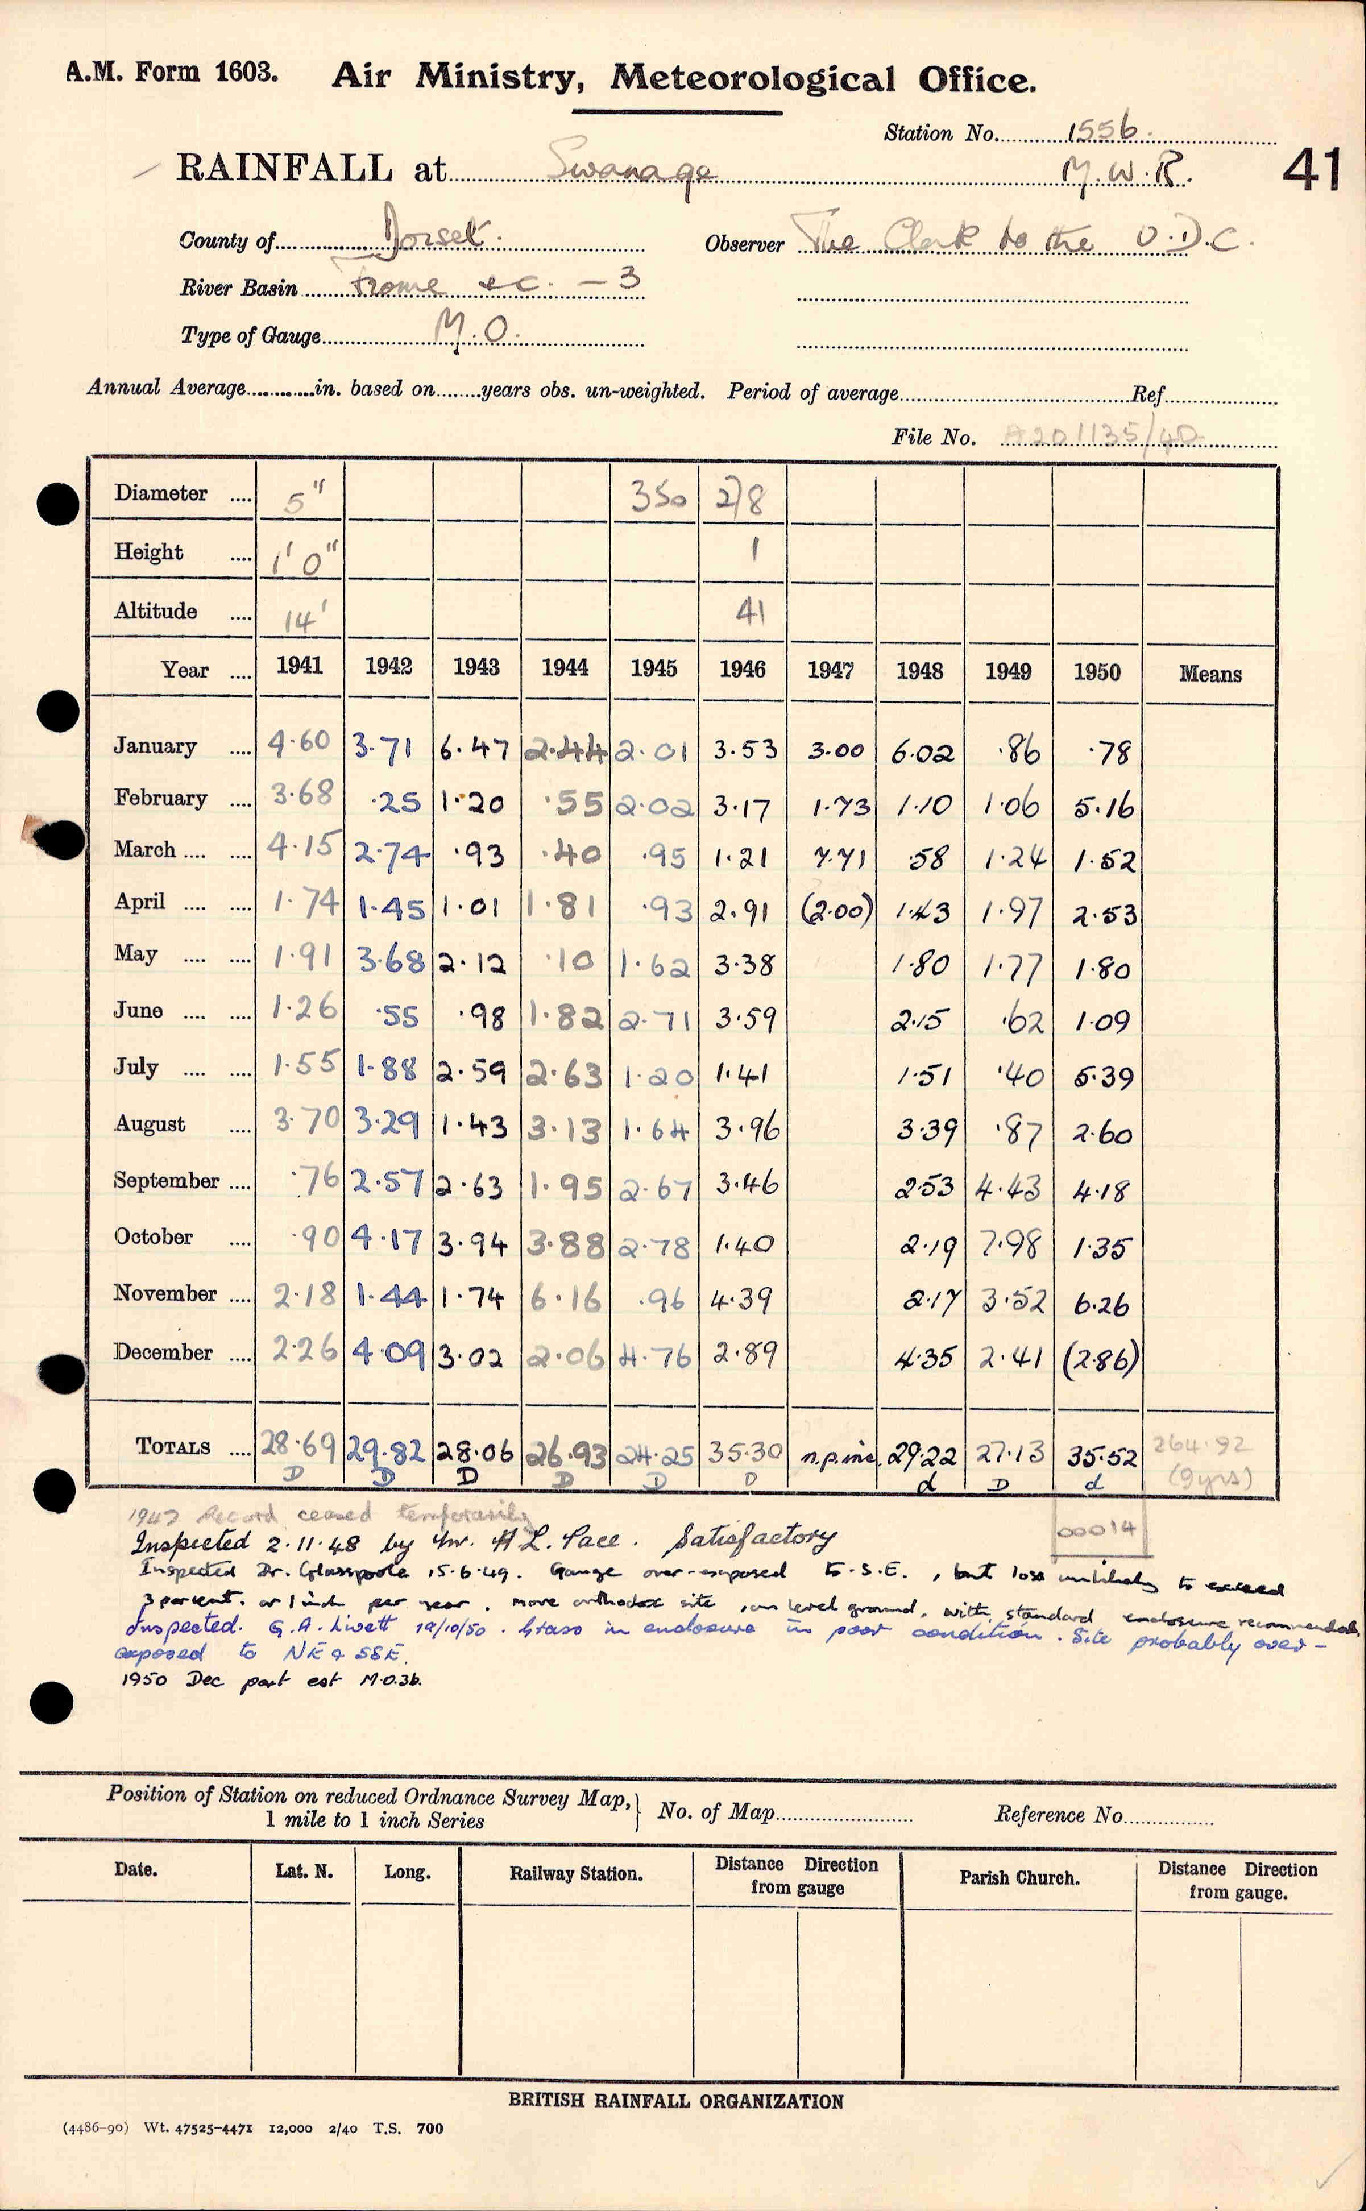 A.M. Form 1603. Air Ministry, Meteorological Office.
Station No. 1556.
RAINFALL at Swanage M.W.R. 41
County of Dorset. Observer The Clerk to the U.D.C.
River Basin Frome &c. – 3
Type of Gauge M.O.
Annual Average in. based on years obs. un-weighted. Period of average Ref
File No. A201135/40
Diameter .... 5" 350 2/8
Height .... 1' 0" 1
Altitude .... 14' 41
Year .... 1941 1942 1943 1944 1945 1946 1947 1948 1949 1950 Means
January .... 4.60 3.71 6.47 2.44 2.01 3.53 3.00 6.02 .86 .78
February .... 3.68 .25 1.20 .55 2.02 3.17 1.73 1.10 1.06 5.16
March .... .... 4.15 2.74 .93 .40 .95 1.21 7.71 .58 1.24 1.52
April .... .... 1.74 1.45 1.01 1.81 .93 2.91 (2.00) 1.43 1.97 2.53
May .... .... 1.91 3.68 2.12 .10 1.62 3.38 1.80 1.77 1.80
June .... .... 1.26 .55 .98 1.82 2.71 3.59 2.15 .62 1.09
July .... .... 1.55 1.88 2.59 2.63 1.20 1.41 1.51 .40 5.39
August .... 3.70 3.29 1.43 3.13 1.64 3.96 3.39 .87 2.60
September .... .76 2.57 2.63 1.95 2.67 3.46 2.53 4.43 4.18
October .... .90 4.17 3.94 3.88 2.78 1.40 2.19 7.98 1.35
November .... 2.18 1.44 1.74 6.16 .96 4.39 2.17 3.52 6.26
December .... 2.26 4.09 3.02 2.06 4.76 2.89 4.35 2.41 (2.86)
TOTALS .... 28.69 29.82 28.06 26.93 24.25 35.30 n.p.inc. 29.22 27.13 35.52 264.92
D D D D D D d D d (9yrs)
1947 Record ceased temporarily
00014
Inspected 2.11.48 by Mr. H.L. Pace. Satisfactory
Inspected Dr. Glasspoole 15.6.49. Gauge over-exposed to S.E., but loss unlikely to exceed
3 per cent. or 1 inch per year. More orthodox site, on level ground, with standard enclosure recommended.
Inspected. G.A. Livett 19/10/50. Grass in enclosure in poor condition. Site probably over-
exposed to NE & SSE.
1950 Dec part est M.O.3b.
Position of Station on reduced Ordnance Survey Map, 1 mile to 1 inch Series No. of Map Reference No.
Date. Lat. N. Long. Railway Station. Distance Direction from gauge Parish Church. Distance Direction from gauge.
BRITISH RAINFALL ORGANIZATION
(4486-90) Wt. 47525-4471 12,000 2/40 T.S. 700